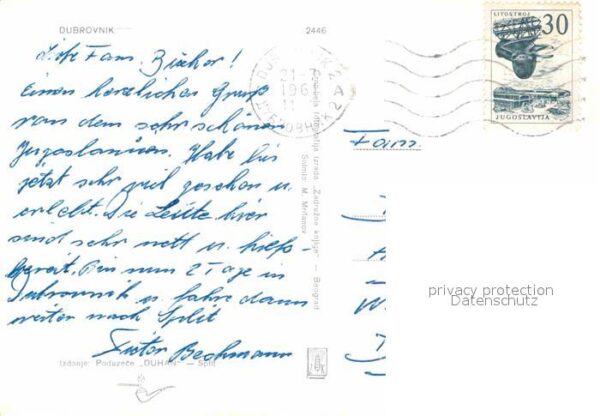 DUBROVNIK
2446
Liebe Fam. Bischor!
Einen herzlichen Gruß
von dem sehr schönen
Jugoslawien. Habe bis
jetzt sehr viel gesehen u.
erlebt. Die Leute hier
sind sehr nett u. hilfs-
bereit. Bin nun 2 Tage in
Dubrovnik u. fahre dann
weiter nach Split
Beckmann
Izdanje: Poduzeće „DUHAN" — Split
Snimio M. Mrđanov
izrada „Zadružne knjige" — Beograd
LITOSTROJ
30
JUGOSLAVIJA
Fam.
privacy protection
Datenschutz